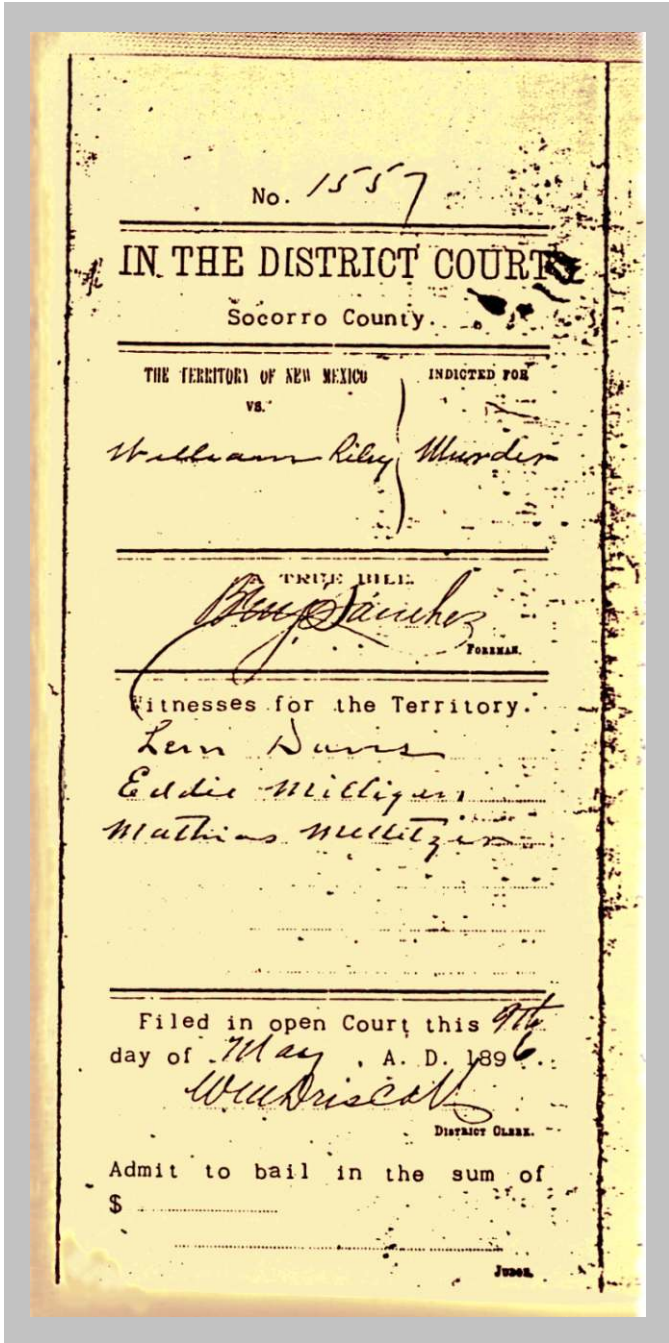 No. 1557
IN THE DISTRICT COURT
Socorro County.
THE TERRITORY OF NEW MEXICO
INDICTED FOR
VS.
William Riley
Murder
A TRUE BILL
Benj Sanchez
FOREMAN.
Witnesses for the Territory.
Lem Davis
Eddie Milligan
Mathias
Filed in open Court this 9th
day of May, A. D. 1896.
Wm Driscoll
DISTRICT CLERK.
Admit to bail in the sum of
$
JUDGE.